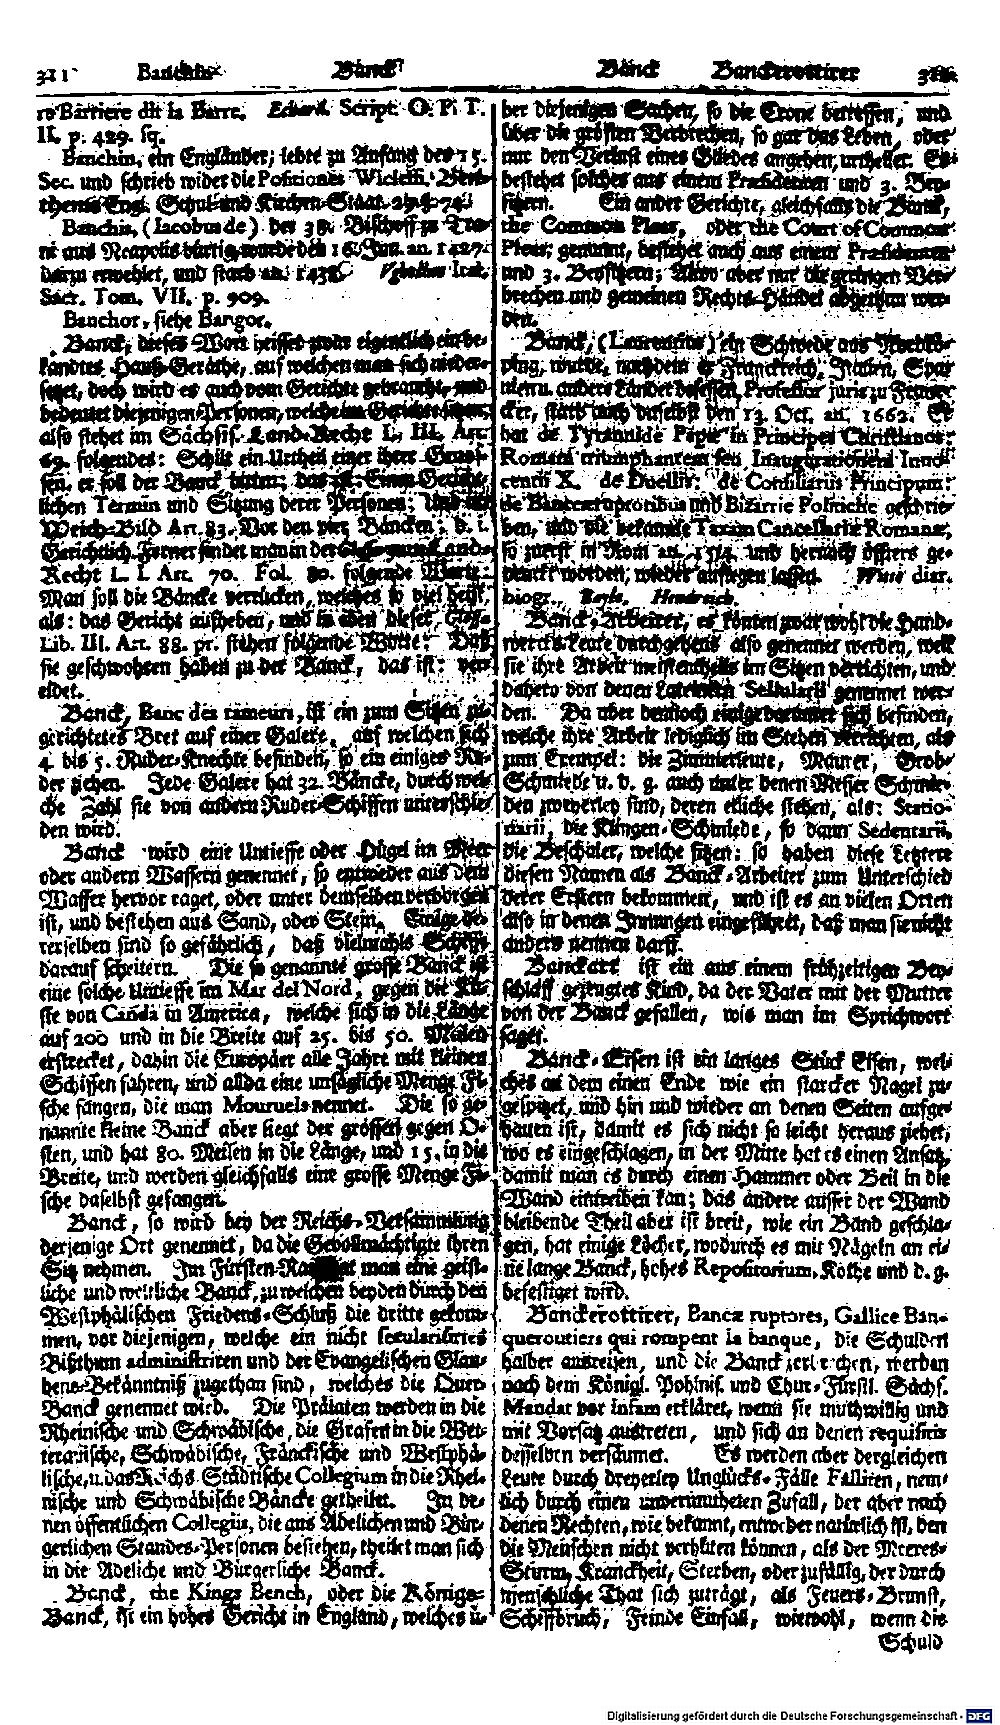 311 Banchin Banck
Banck Banckerottirer 312
re Barriere dit la Barre. Echard. Script. O. P. T.
II. p. 429. sq.
Banchin, ein Engländer, lebte zu Anfang des 15.
Sec. und schrieb wider die Positiones Wicleffi.
Engl. Schul- und Kirchen-Staat.
Banchis, (Jacobus de) der 38. Bischoff zu
aus Neapolis bürtig, wurde den 16. Jun. an. 1427.
darzu erwehlet, und starb an. 1438. Vghellus Ital.
Sacr. Tom. VII. p. 909.
Banchor, siehe Bangor.
Banck, dieses Wort heisset zwar eigentlich ein be-
kandtes Hauß-Geräthe, auf welchen man sich nieder-
setzet, doch wird es auch vom Gerichte gebraucht, und
bedeutet diejenigen Personen, welche im Gerichte sitzen,
also stehet im Sächsis. Land-Recht L. III. Art.
69. folgendes: Schilt ein Urtheil einer ihrer Genos-
sen, er soll der Banck bitten; das ist: Einen Gericht-
lichen Termin und Sitzung derer Personen; Und im
Weich-Bild Art. 83. Vor den vier Bäncken; d. i.
Gerichtlich. Ferner findet man in der Land-
Recht L. I. Art. 70. Fol. 80. folgende Worte:
Man soll die Bäncke verrücken, welches so viel heist,
als: das Gericht aufheben, und in eben dieser,
Lib. III. Art. 88. pr. stehen folgende Worte: Daß
sie geschwohren haben zu der Banck, das ist: ver-
eidet.
Banck, Banc des rameurs, ist ein zum Sitzen zu-
gerichtetes Bret auf einer Galere, auf welchen sich
4. bis 5. Ruder-Knechte befinden, so ein einiges Ru-
der ziehen. Jede Galere hat 32. Bäncke, durch wel-
che Zahl sie von andern Ruder-Schiffen unterschie-
den wird.
Banck wird eine Untieffe oder Hügel im Meer
oder andern Wassern genennet, so entweder aus dem
Wasser hervor raget, oder unter demselben verborgen
ist, und bestehen aus Sand, oder Stein. Einige de-
rerselben sind so gefährlich, daß vielmahls Schiffe
darauf scheitern. Die so genannte grosse Banck ist
eine solche Untieffe im Mar del Nord, gegen die Kü-
ste von Canada in America, welche sich in die Länge
auf 200 und in die Breite auf 25. bis 50. Meilen
erstrecket, dahin die Europäer alle Jahre mit kleinen
Schiffen fahren, und allda eine unsägliche Menge Fi-
sche fangen, die man Mouruels nennet. Die so ge-
nannte kleine Banck aber liegt der grössern gegen O-
sten, und hat 80. Meilen in die Länge, und 15. in die
Breite, und werden gleichfalls eine grosse Menge Fi-
sche daselbst gefangen.
Banck, so wird bey der Reichs-Versammlung
derjenige Ort genennet, da die Gevollmächtigte ihren
Sitz nehmen. Im Fürsten-Rath hat man eine geist-
liche und weltliche Banck, zu welchen beyden durch den
Westphälischen Friedens-Schluß die dritte gekom-
men, vor diejenigen, welche ein nicht secularisirtes
Bißthum administriren und der Evangelischen Glau-
bens-Bekänntniß zugethan sind, welches die Quer-
Banck genennet wird. Die Prälaten werden in die
Rheinische und Schwäbische, die Grafen in die Wet-
terauische, Schwäbische, Fränckische und Westphä-
lische, u. das Reichs-Städtische Collegium in die Rhei-
nische und Schwäbische Bäncke getheilet. In de-
nen öffentlichen Collegiis, die aus Adelichen und Bür-
gerlichen Standes-Personen bestehen, theilet man sich
in die Adeliche und Bürgerliche Banck.
Banck, the Kings Bench, oder die Königs-
Banck, ist ein hohes Gericht in England, welches ü-
ber diejenigen Sachen, so die Crone betreffen, und
über die grösten Verbrechen, so gar das Leben, oder
nur den Verlust eines Gliedes angehen, urtheilet. Es
bestehet solches aus einem Præsidenten und 3. Bey-
sitzern. Ein ander Gerichte, gleichfalls die Banck,
the Common Pleas, oder the Court of Common
Pleas, genennt, bestehet auch aus einem Præsidenten
und 3. Beysitzern; Allwo aber nur die geringen Ver-
brechen und gemeinen Rechts-Händel abgethan wer-
den.
Banck, (Laurentius) ein Schwede aus Norkö-
ping, wurde, nachdem er Franckreich, Italien, Spa-
nien u. andere Länder besessen, Professor juris zu Frane-
cker, starb auch daselbst den 13. Oct. an. 1662. Er
hat de Tyrannide Papæ in Principes Christianos;
Romam triumphantem seu Inaugurationem Inno-
centii X. de Duellis; de Consiliariis Principum;
de Bancæruptoribus und Bizarrie Politiche geschrie-
ben, und die bekannte Taxam Cancellariæ Romanæ,
so zuerst in Rom an. 1514. und hernach öffters ge-
druckt worden, wieder auflegen lassen. Witte diar.
biogr. Bayle. Hendreich.
Banck-Arbeiter, es könten zwar wohl die Hand-
wercks-Leute durchgehens also genennet werden, weil
sie ihre Arbeit meistentheils im Sitzen verrichten, und
dahero von denen Lateinern Sellularii genennet wer-
den. Da aber dennoch einige darunter sich befinden,
welche ihre Arbeit lediglich im Stehen verrichten, als
zum Exempel: die Zimmerleute, Maurer, Grob-
Schmiede u. d. g. auch unter denen Messer Schmie-
den zweyerley sind, deren etliche stehen, als: Statio-
narii, die Klingen-Schmiede, so dann Sedentarii,
die Beschaler, welche sitzen: so haben diese Letztere
diesen Namen als Banck-Arbeiter zum Unterschied
derer Erstern bekommen, und ist es an vielen Orten
also in denen Innungen eingeführet, daß man sie nicht
anders nennen darff.
Banckart ist ein aus einem frühzeitigen Bey-
schlaff gezeugtes Kind, da der Vater mit der Mutter
von der Banck gefallen, wie man im Sprichwort
saget.
Banck-Eisen ist ein langes Stück Eisen, wel-
ches an dem einen Ende wie ein starcker Nagel zu-
gespitzet, und hin und wieder an denen Seiten aufge-
hauen ist, damit es sich nicht so leicht heraus ziehet,
wo es eingeschlagen, in der Mitte hat es einen Ansatz,
damit man es durch einen Hammer oder Beil in die
Wand eintreiben kan; das andere ausser der Wand
bleibende Theil aber ist breit, wie ein Band geschla-
gen, hat einige Löcher, wodurch es mit Nägeln an ei-
ne lange Banck, hohes Repositorium, Kothe und d. g.
befestiget wird.
Banckerottirer, Bancæ ruptores, Gallice Ban-
queroutiers qui rompent la banque, die Schulden
halber ausreisen, und die Banck zerbrechen, werden
nach dem Königl. Pohlnis. und Chur-Fürstl. Sächs.
Mandat vor Infam erkläret, wenn sie muthwillig und
mit Vorsatz austreten, und sich an denen requisitis
desselben versäumet. Es werden aber dergleichen
Leute durch dreyerley Unglücks-Fälle Falliten, nem-
lich durch einen unvermutheten Zufall, der aber nach
denen Rechten, wie bekannt, entweder natürlich ist, den
die Menschen nicht verhüten können, als der Meeres-
Sturm, Kranckheit, Sterben, oder zufällig, der durch
menschliche That sich zuträgt, als Feuers-Brunst,
Schiffbruch, Feinde Einfall, wiewohl, wenn die
Schuld
Digitalisierung gefördert durch die Deutsche Forschungsgemeinschaft - DFG